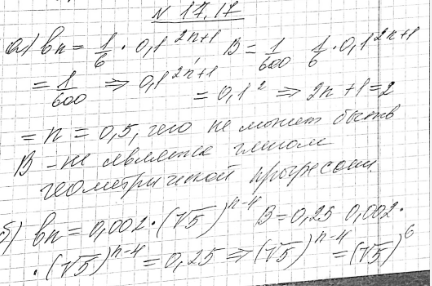 N 17.17
а) bn = 1/6 · 0,1^(2n+1) B = 1/600 1/6 · 0,1^(2n+1)
= 1/600 ⇒ 0,1^(2n+1) = 0,1^2 ⇒ 2n+1=2
= n = 0,5, чего не может быть
B - не является членом
геометрической прогрессии.
б) bn = 0,002 · (√5)^(n-4) B = 0,25 0,002 ·
· (√5)^(n-4) = 0,25 ⇒ (√5)^(n-4) = (√5)^6